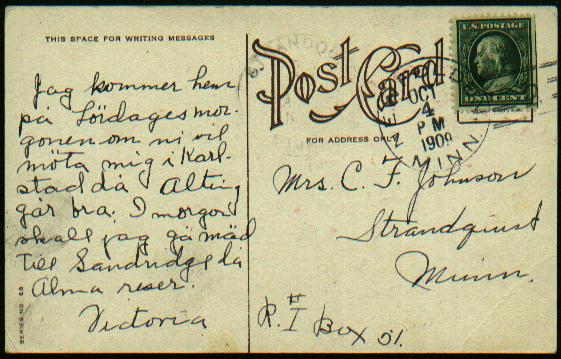 THIS SPACE FOR WRITING MESSAGES
Post Card
FOR ADDRESS ONLY
U.S. POSTAGE
ONE CENT
OCT
4
P M
1909
MINN.
Jag kommer hem
på Lördages mor-
gonen om ni vil
möta mig i Karl-
stad då Alting
går bra. I morgon
skall jag gå mäd
till Sandridge då
Alma reser.
Victoria
Mrs. C. F. Johnson
Strandquist
Minn.
R. I Box 51.
SERIES NO. 65